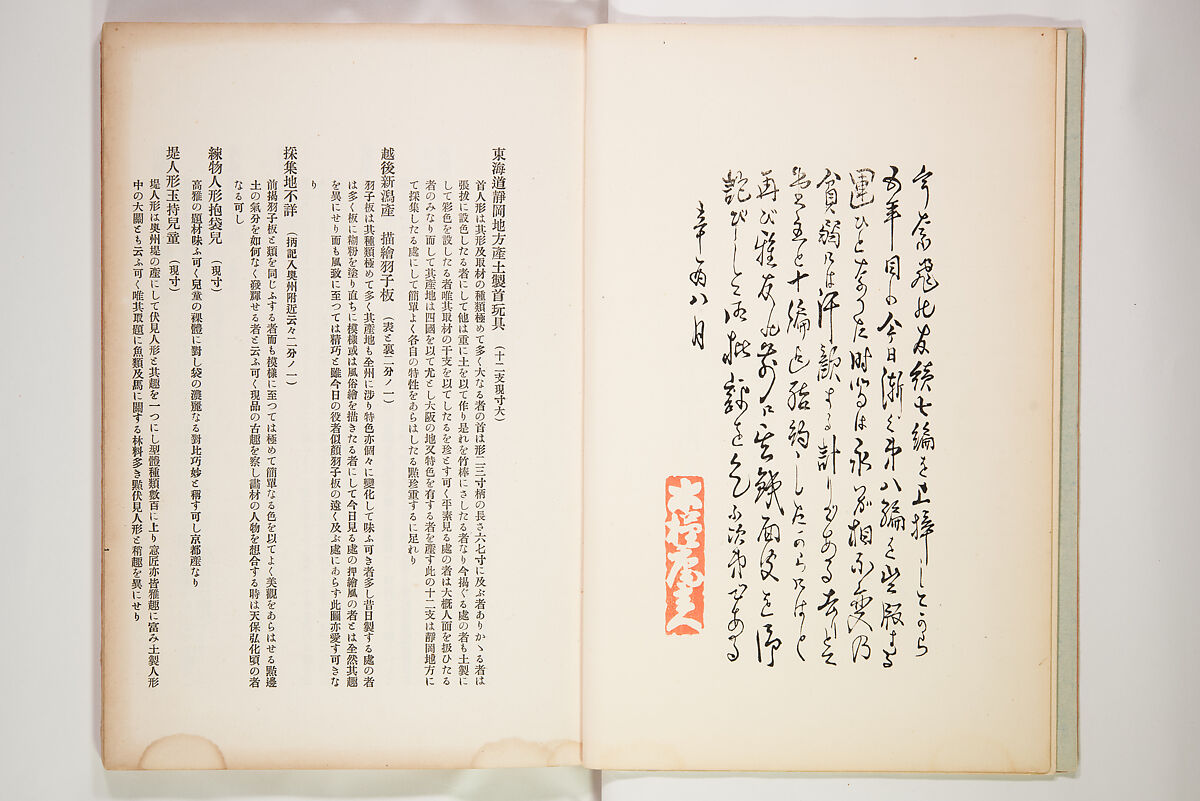 うなゐの友續七編を上梓してから
五年目の今日漸く第八編を出版する
運ひとなつた時尚は永い相不變の
貧弱には汗顔する計りである
再び雅友の前に鐵面皮を
詫びして御批評を乞ふ次第である
辛酉八月
東海道靜岡地方產土製首玩具 (十二支現寸大)
首人形は其形及取材の種類極めて多く大なる者の首は形二三寸柄の長さ六七寸に及ぶ者ありかゝる者は
張拔に設色したる者にして他は重に土を以て作り是れを竹棒にさしたる者なり今揭ぐる處の者も土製に
して彩色を設したる者唯其取材の干支を以てしたるを珍とす可く平素見る處の者は大槪人面を扱ひたる
者のみなり而して其產地は四國を以て尤とし大阪の地又特色を有する者を產す此の十二支は靜岡地方に
て採集したる處にして簡單よく各自の特性をあらはしたる點珍重するに足れり
越後新潟產 描繪羽子板 (表と裏二分ノ一)
羽子板は其種類極めて多く其產地も全州に涉り特色亦個々に變化して味ふ可き者多し昔日製する處の者
は多く板に糊粉を塗り直ちに模樣或は風俗繪を描きたる者にして今日見る處の押繪風の者とは全然其趣
を異にせり而も風致に至つては精巧と雖今日の役者似顏羽子板の遠く及ぶ處にあらす此圖亦愛す可きな
り
採集地不詳 (抦記入奧州附近云々二分ノ一)
前揭羽子板と類を同じふする者而も模樣に至つては極めて簡單なる色を以てよく美觀をあらはせる點邊
土の氣分を如何なく發輝せる者と云ふ可く現品の古趣を察し畫材の人物を想合する時は天保弘化頃の者
なる可し
練物人形抱袋兒 (現寸)
高雅の題材味ふ可く兒童の裸體に對し袋の濃麗なる對比巧妙と稱す可し京都產なり
堤人形玉持兒童 (現寸)
堤人形は奧州堤の產にして伏見人形と其趣を一つにし型體種類數百に上り意匠亦皆雅趣に富み土製人形
中の大關とも云ふ可く唯其取題に魚類及馬に關する材料多き點伏見人形と稍趣を異にせり